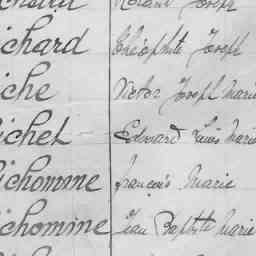 Joseph
ichard Théophile Joseph
iche Victor Joseph Marie
ichet Edouard Louis Marie
ichomme François Marie
ichomme Jean Baptiste Marie